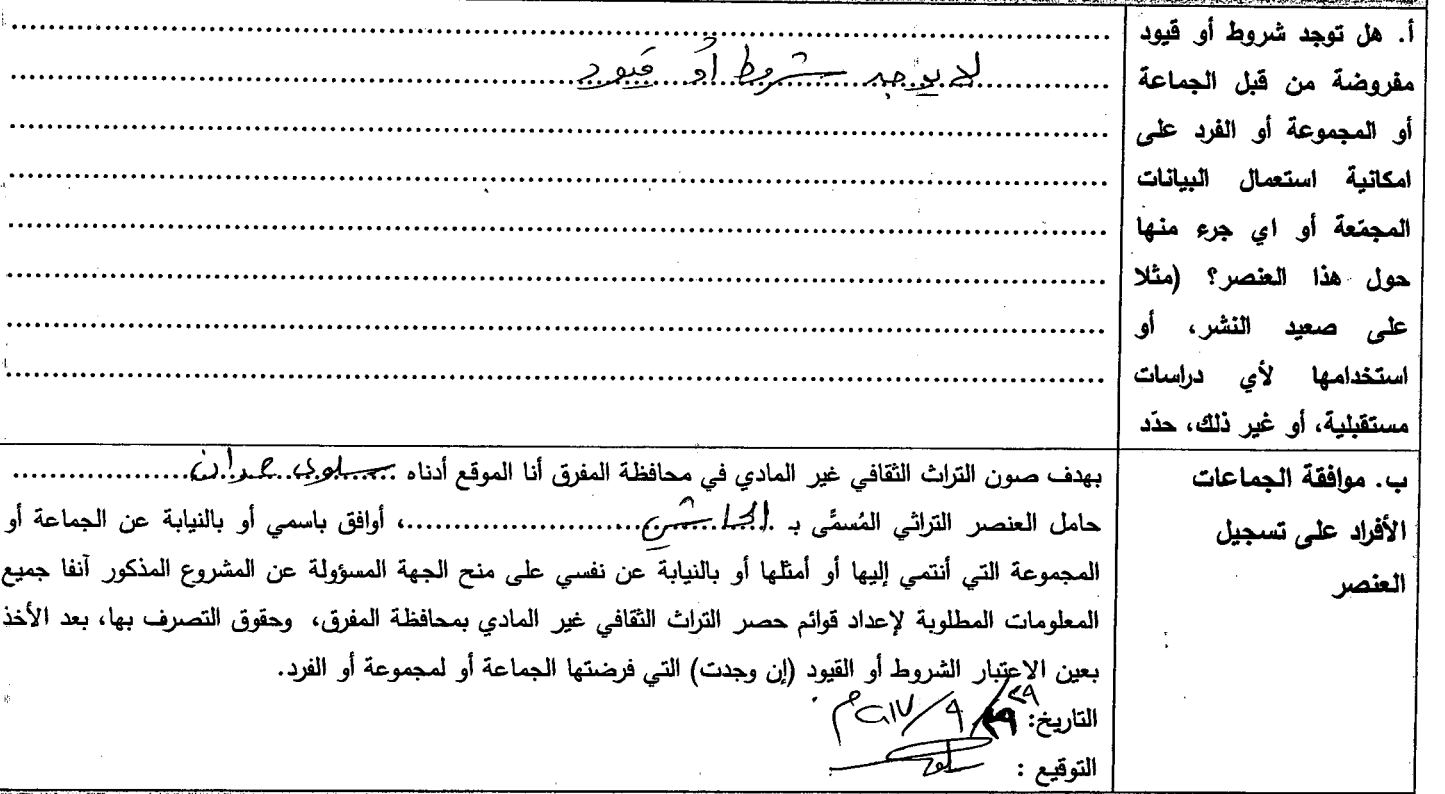 أ. هل توجد شروط أو قيود
مفروضة من قبل الجماعة
أو المجموعة أو الفرد على
امكانية استعمال البيانات
المجمّعة أو اي جرء منها
حول هذا العنصر؟ (مثلا
على صعيد النشر، أو
استخدامها لأي دراسات
مستقبلية، أو غير ذلك، حدّد
لا يوجد شروط أو قيود
ب. موافقة الجماعات
الأفراد على تسجيل
العنصر
بهدف صون التراث الثقافي غير المادي في محافظة المفرق أنا الموقع أدناه سلوى حمدان
حامل العنصر التراثي المُسمَّى بـ ........................، أوافق باسمي أو بالنيابة عن الجماعة أو
المجموعة التي أنتمي إليها أو أمثلها أو بالنيابة عن نفسي على منح الجهة المسؤولة عن المشروع المذكور آنفا جميع
المعلومات المطلوبة لإعداد قوائم حصر التراث الثقافي غير المادي بمحافظة المفرق، وحقوق التصرف بها، بعد الأخذ
بعين الاعتبار الشروط أو القيود (إن وجدت) التي فرضتها الجماعة أو لمجموعة أو الفرد.
التاريخ: ٢٩/٩/٢٠١٧م
التوقيع : سلوى